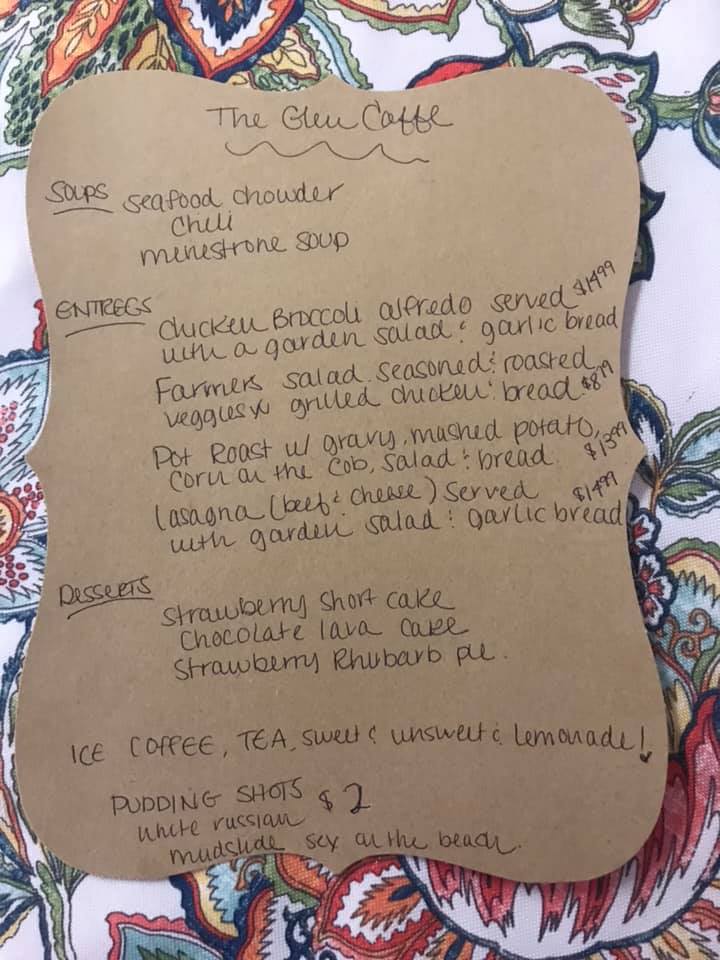 The Glen Caffe
Soups seafood chowder
Chili
menestrone soup
ENTREES
Chicken Broccoli alfredo served $14.99
with a garden salad & garlic bread
Farmers salad. seasoned & roasted
veggies w grilled chicken & bread $8.99
Pot Roast w/ gravy, mashed potato,
corn on the cob, salad & bread. $13.99
lasagna (beef & cheese) served $14.99
with garden salad & garlic bread
Desserts
strawberry short cake
Chocolate lava cake
Strawberry Rhubarb pie.
ICE COFFEE, TEA, sweet & unsweet & lemonade!
PUDDING SHOTS $2
white russian
mudslide sex on the beach.